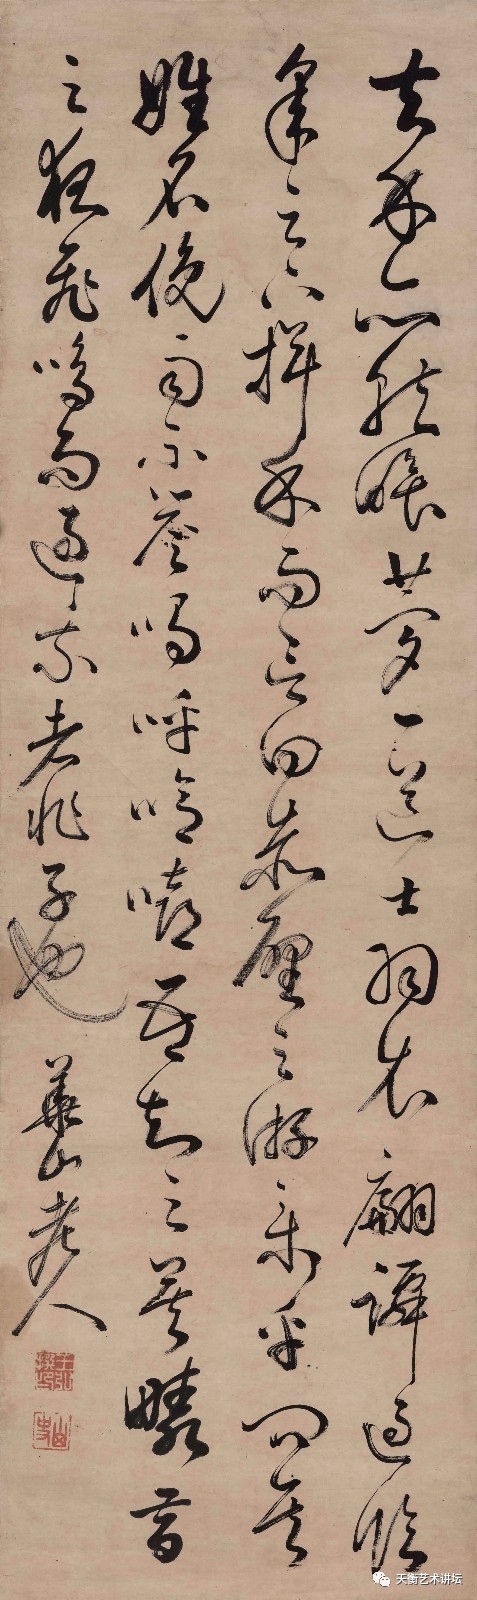 去予亦就睡夢一道士羽衣翩躚過臨
皋之下揖予而言曰赤壁之游樂乎問其
姓名俛而不答嗚呼噫嘻我知之矣疇昔
之夜飛鳴而過我者非子也
華山老人
王弘撰印
山史
天衡艺术讲坛